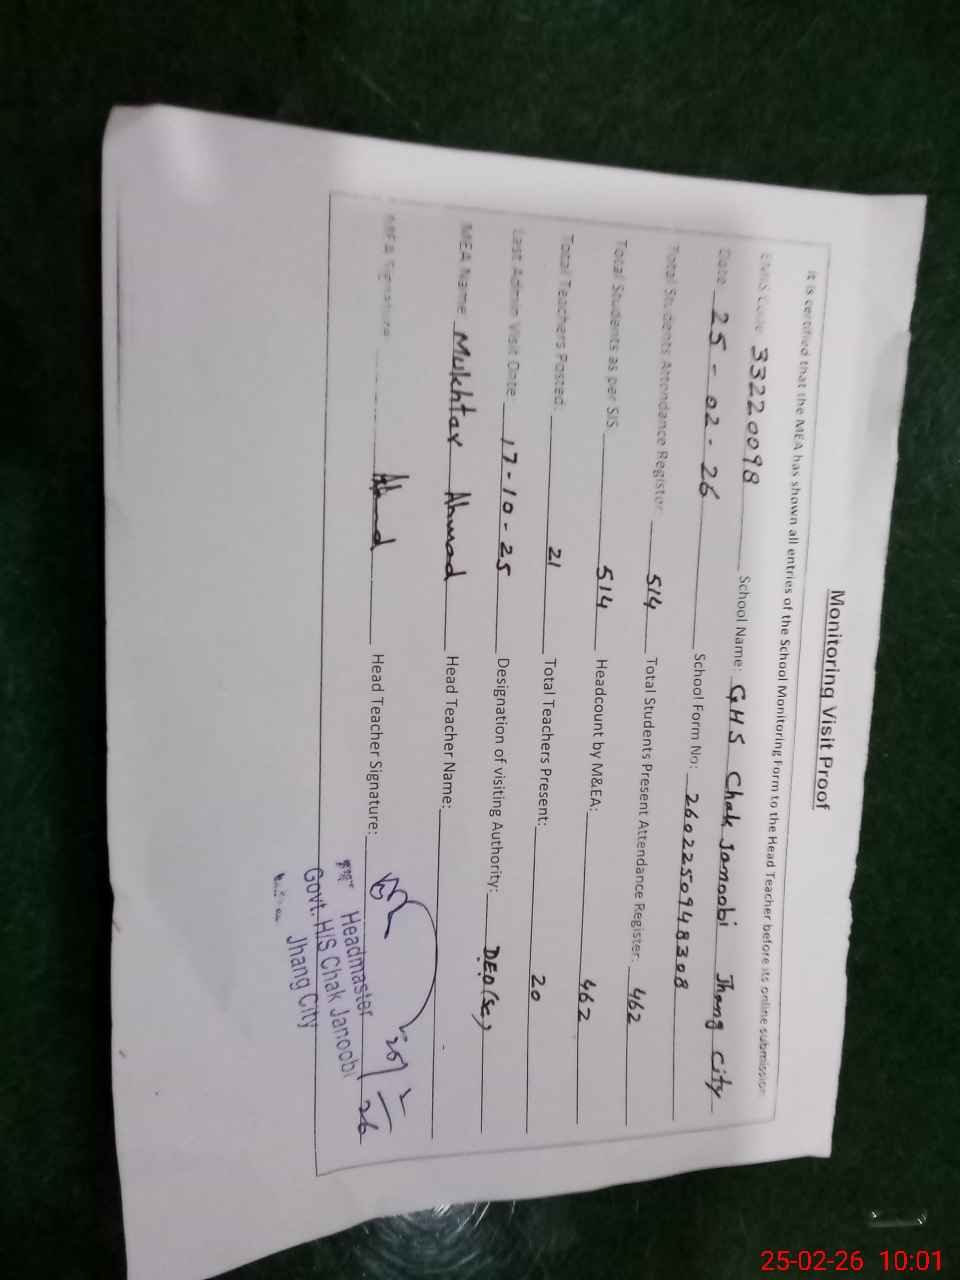 Monitoring Visit Proof
It is certified that the MEA has shown all entries of the School Monitoring Form to the Head Teacher before its online submission
EMIS Code 33220098 School Name: GHS Chak Janoobi Jhang City
Date 25-02-26 School Form No: 2602250948308
Total Students Attendance Register: 514 Total Students Present Attendance Register: 462
Total Students as per SIS: 514 Headcount by M&EA: 462
Total Teachers Posted: 21 Total Teachers Present: 20
Last Admin Visit Date: 17-10-25 Designation of visiting Authority: DEO(SE)
MEA Name Mukhtar Ahmad Head Teacher Name:
MEA Signature Ahmad Head Teacher Signature: 25/2/26
Headmaster
Govt. H/S Chak Janoobi
Jhang City
25-02-26 10:01